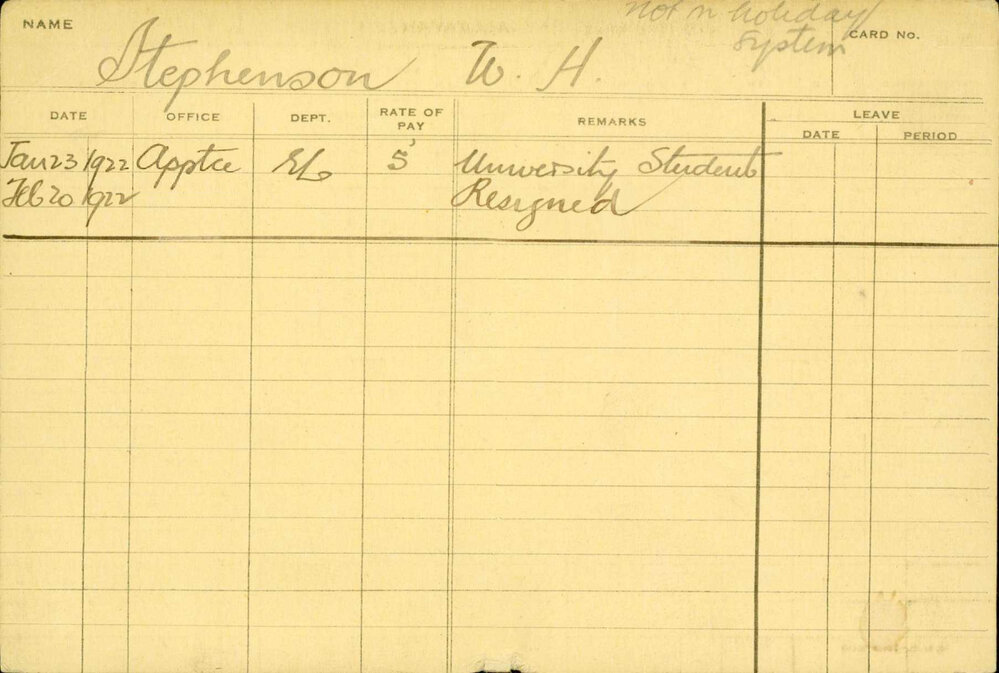 NAME
Not in holiday
system
CARD No.
Stephenson W. H.
DATE OFFICE DEPT. RATE OF PAY REMARKS LEAVE
DATE PERIOD
Jan 23 1922 Apptce EL 5' University Student
Feb 20 1922 Resigned